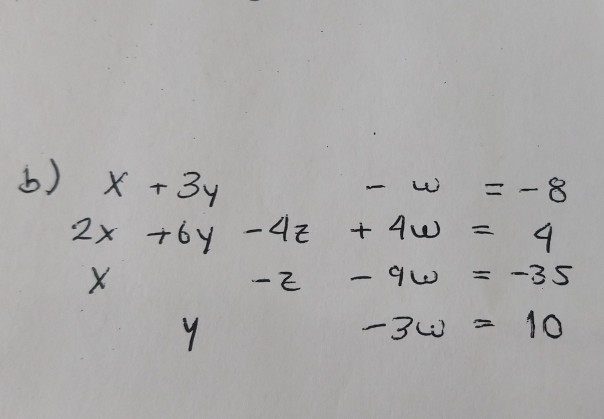 b) x + 3y - w = -8
2x + 6y - 4z + 4w = 4
x - z - 9w = -35
y - 3w = 10